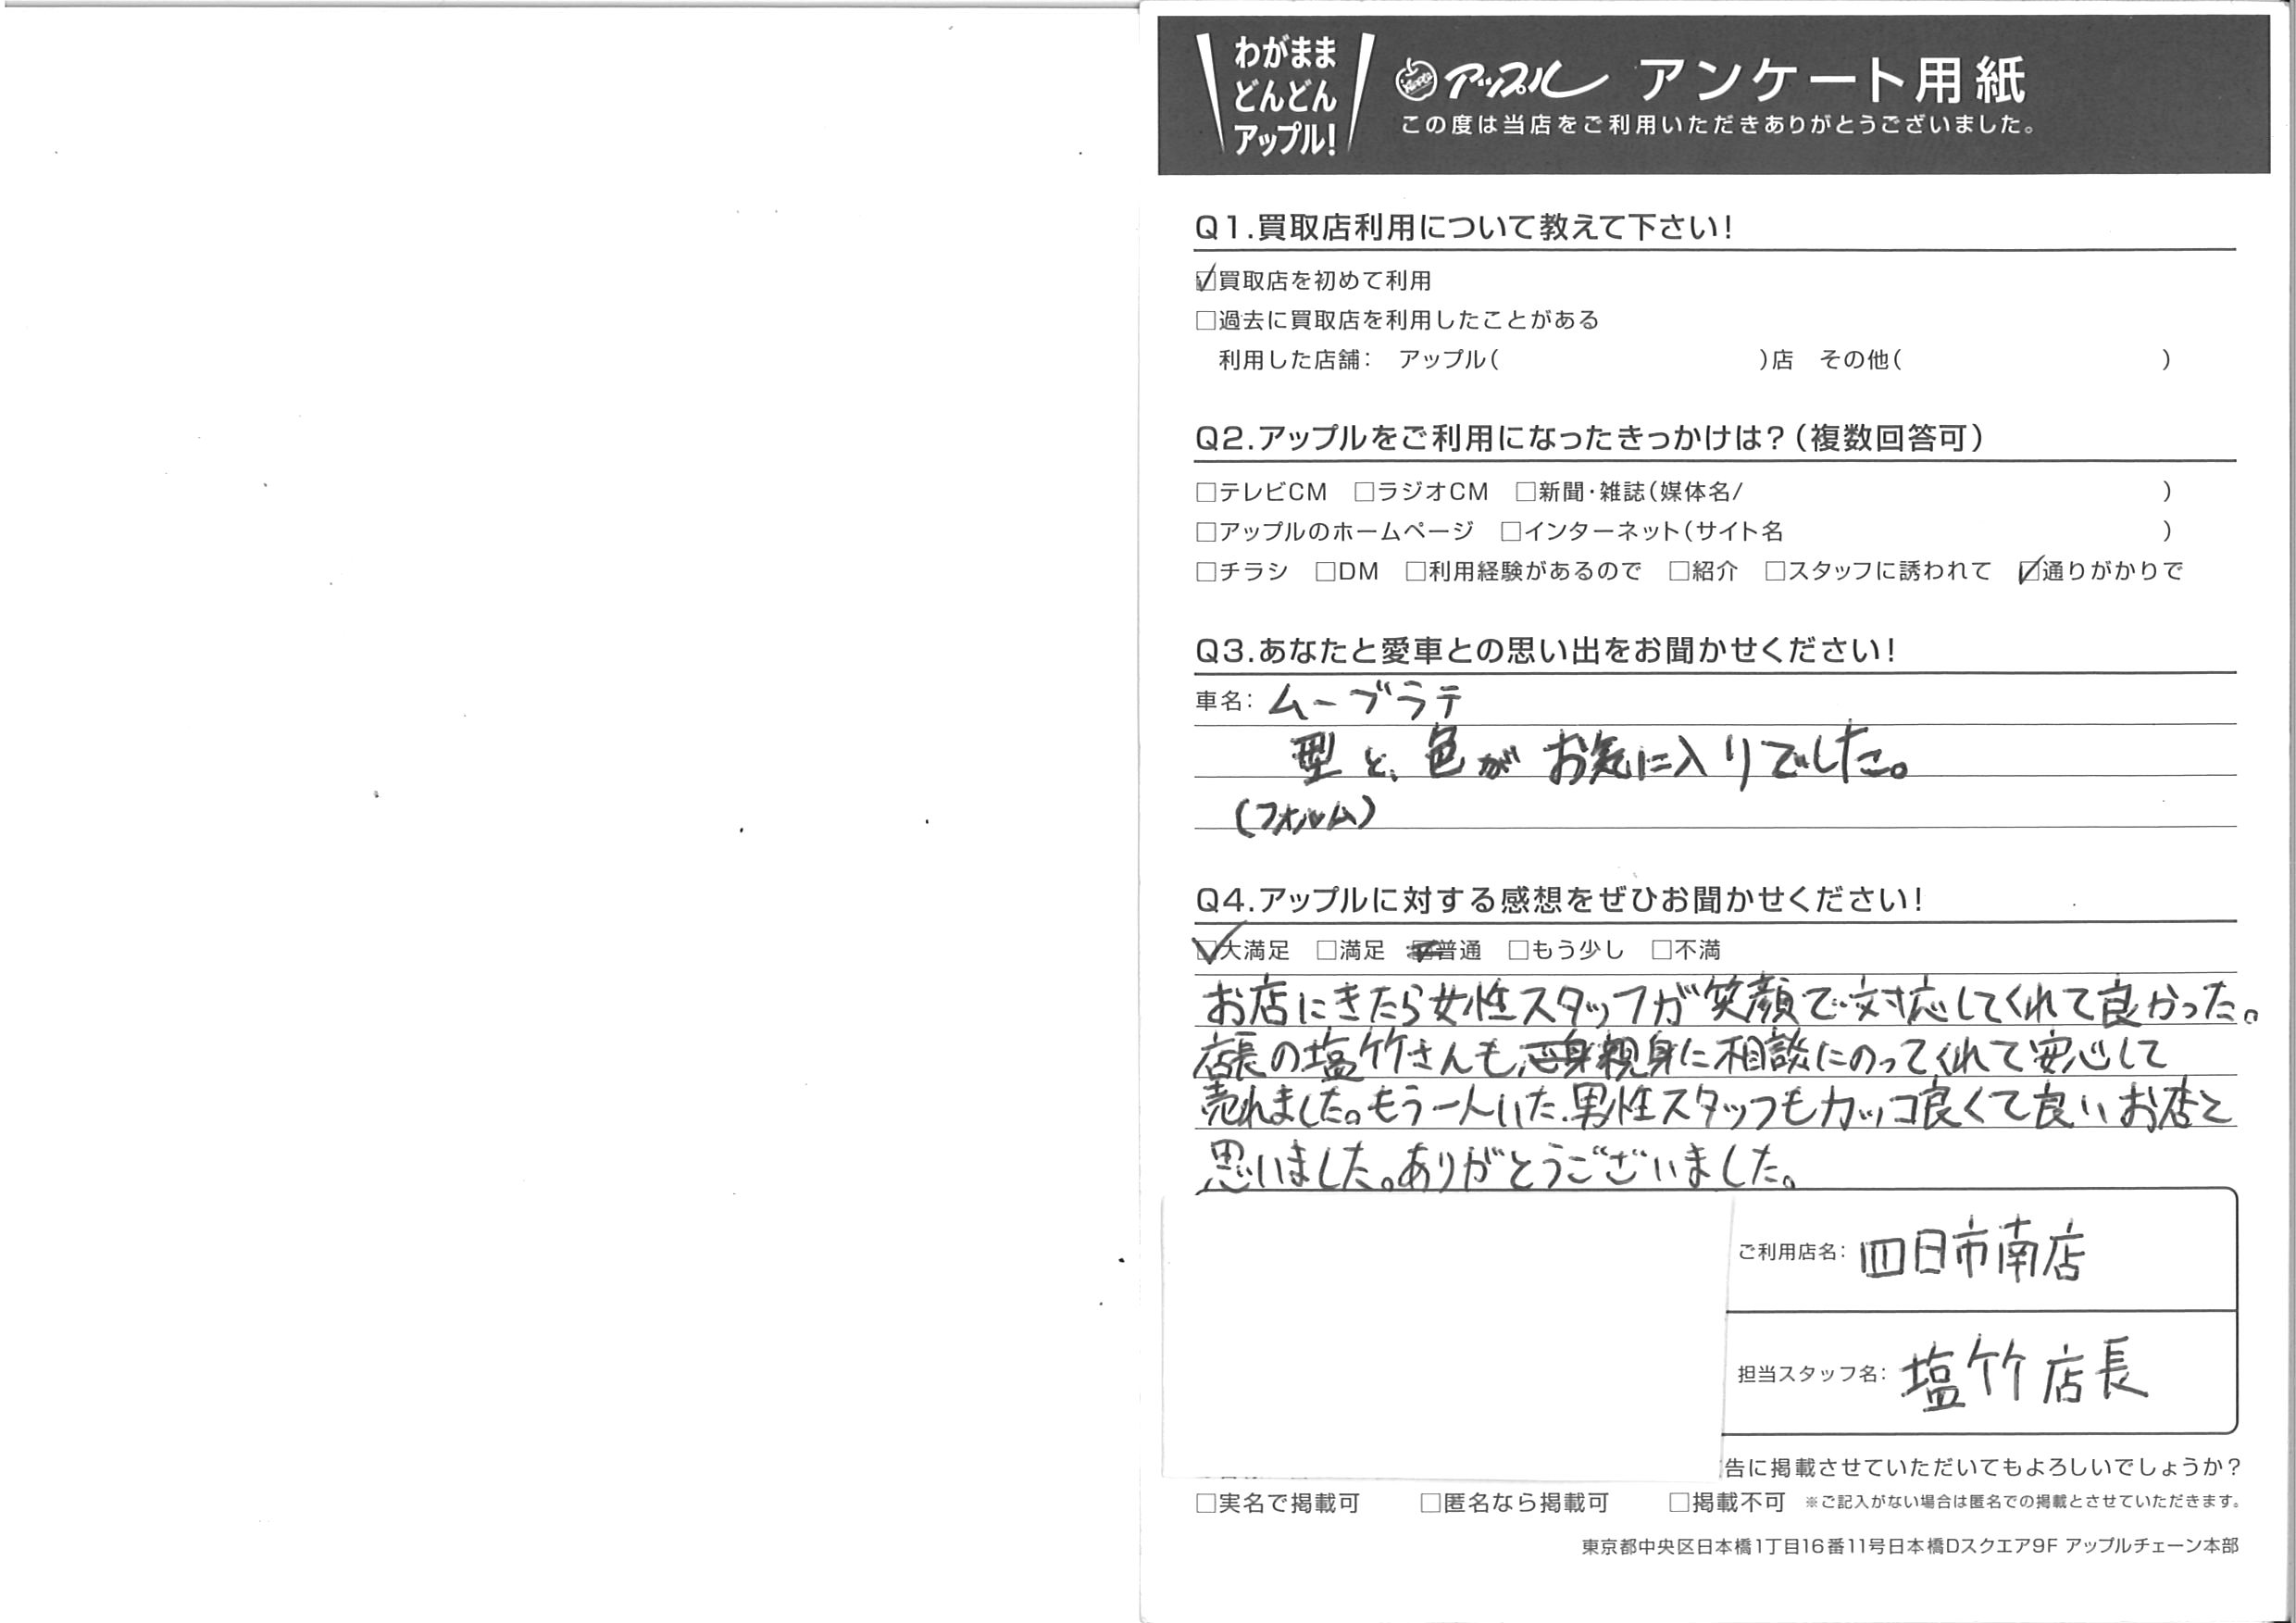 わがまま
どんどん
アップル!
アップル アンケート用紙
この度は当店をご利用いただきありがとうございました。
Q1.買取店利用について教えて下さい!
☑買取店を初めて利用
□過去に買取店を利用したことがある
利用した店舗: アップル( )店 その他( )
Q2.アップルをご利用になったきっかけは?(複数回答可)
□テレビCM □ラジオCM □新聞・雑誌(媒体名/ )
□アップルのホームページ □インターネット(サイト名 )
□チラシ □DM □利用経験があるので □紹介 □スタッフに誘われて ☑通りがかりで
Q3.あなたと愛車との思い出をお聞かせください!
車名: ムーブラテ
型と、色がお気に入りでした。
(フォルム)
Q4.アップルに対する感想をぜひお聞かせください!
☑大満足 □満足 普通 □もう少し □不満
お店にきたら女性スタッフが笑顔で対応してくれて良かった。
店長の塩竹さんも、親身に相談にのってくれて安心して
売れました。もう一人いた男性スタッフもカッコ良くて良いお店と
思いました。ありがとうございました。
ご利用店名: 四日市南店
担当スタッフ名: 塩竹店長
告に掲載させていただいてもよろしいでしょうか?
□実名で掲載可 □匿名なら掲載可 □掲載不可 ※ご記入がない場合は匿名での掲載とさせていただきます。
東京都中央区日本橋1丁目16番11号日本橋Dスクエア9F アップルチェーン本部